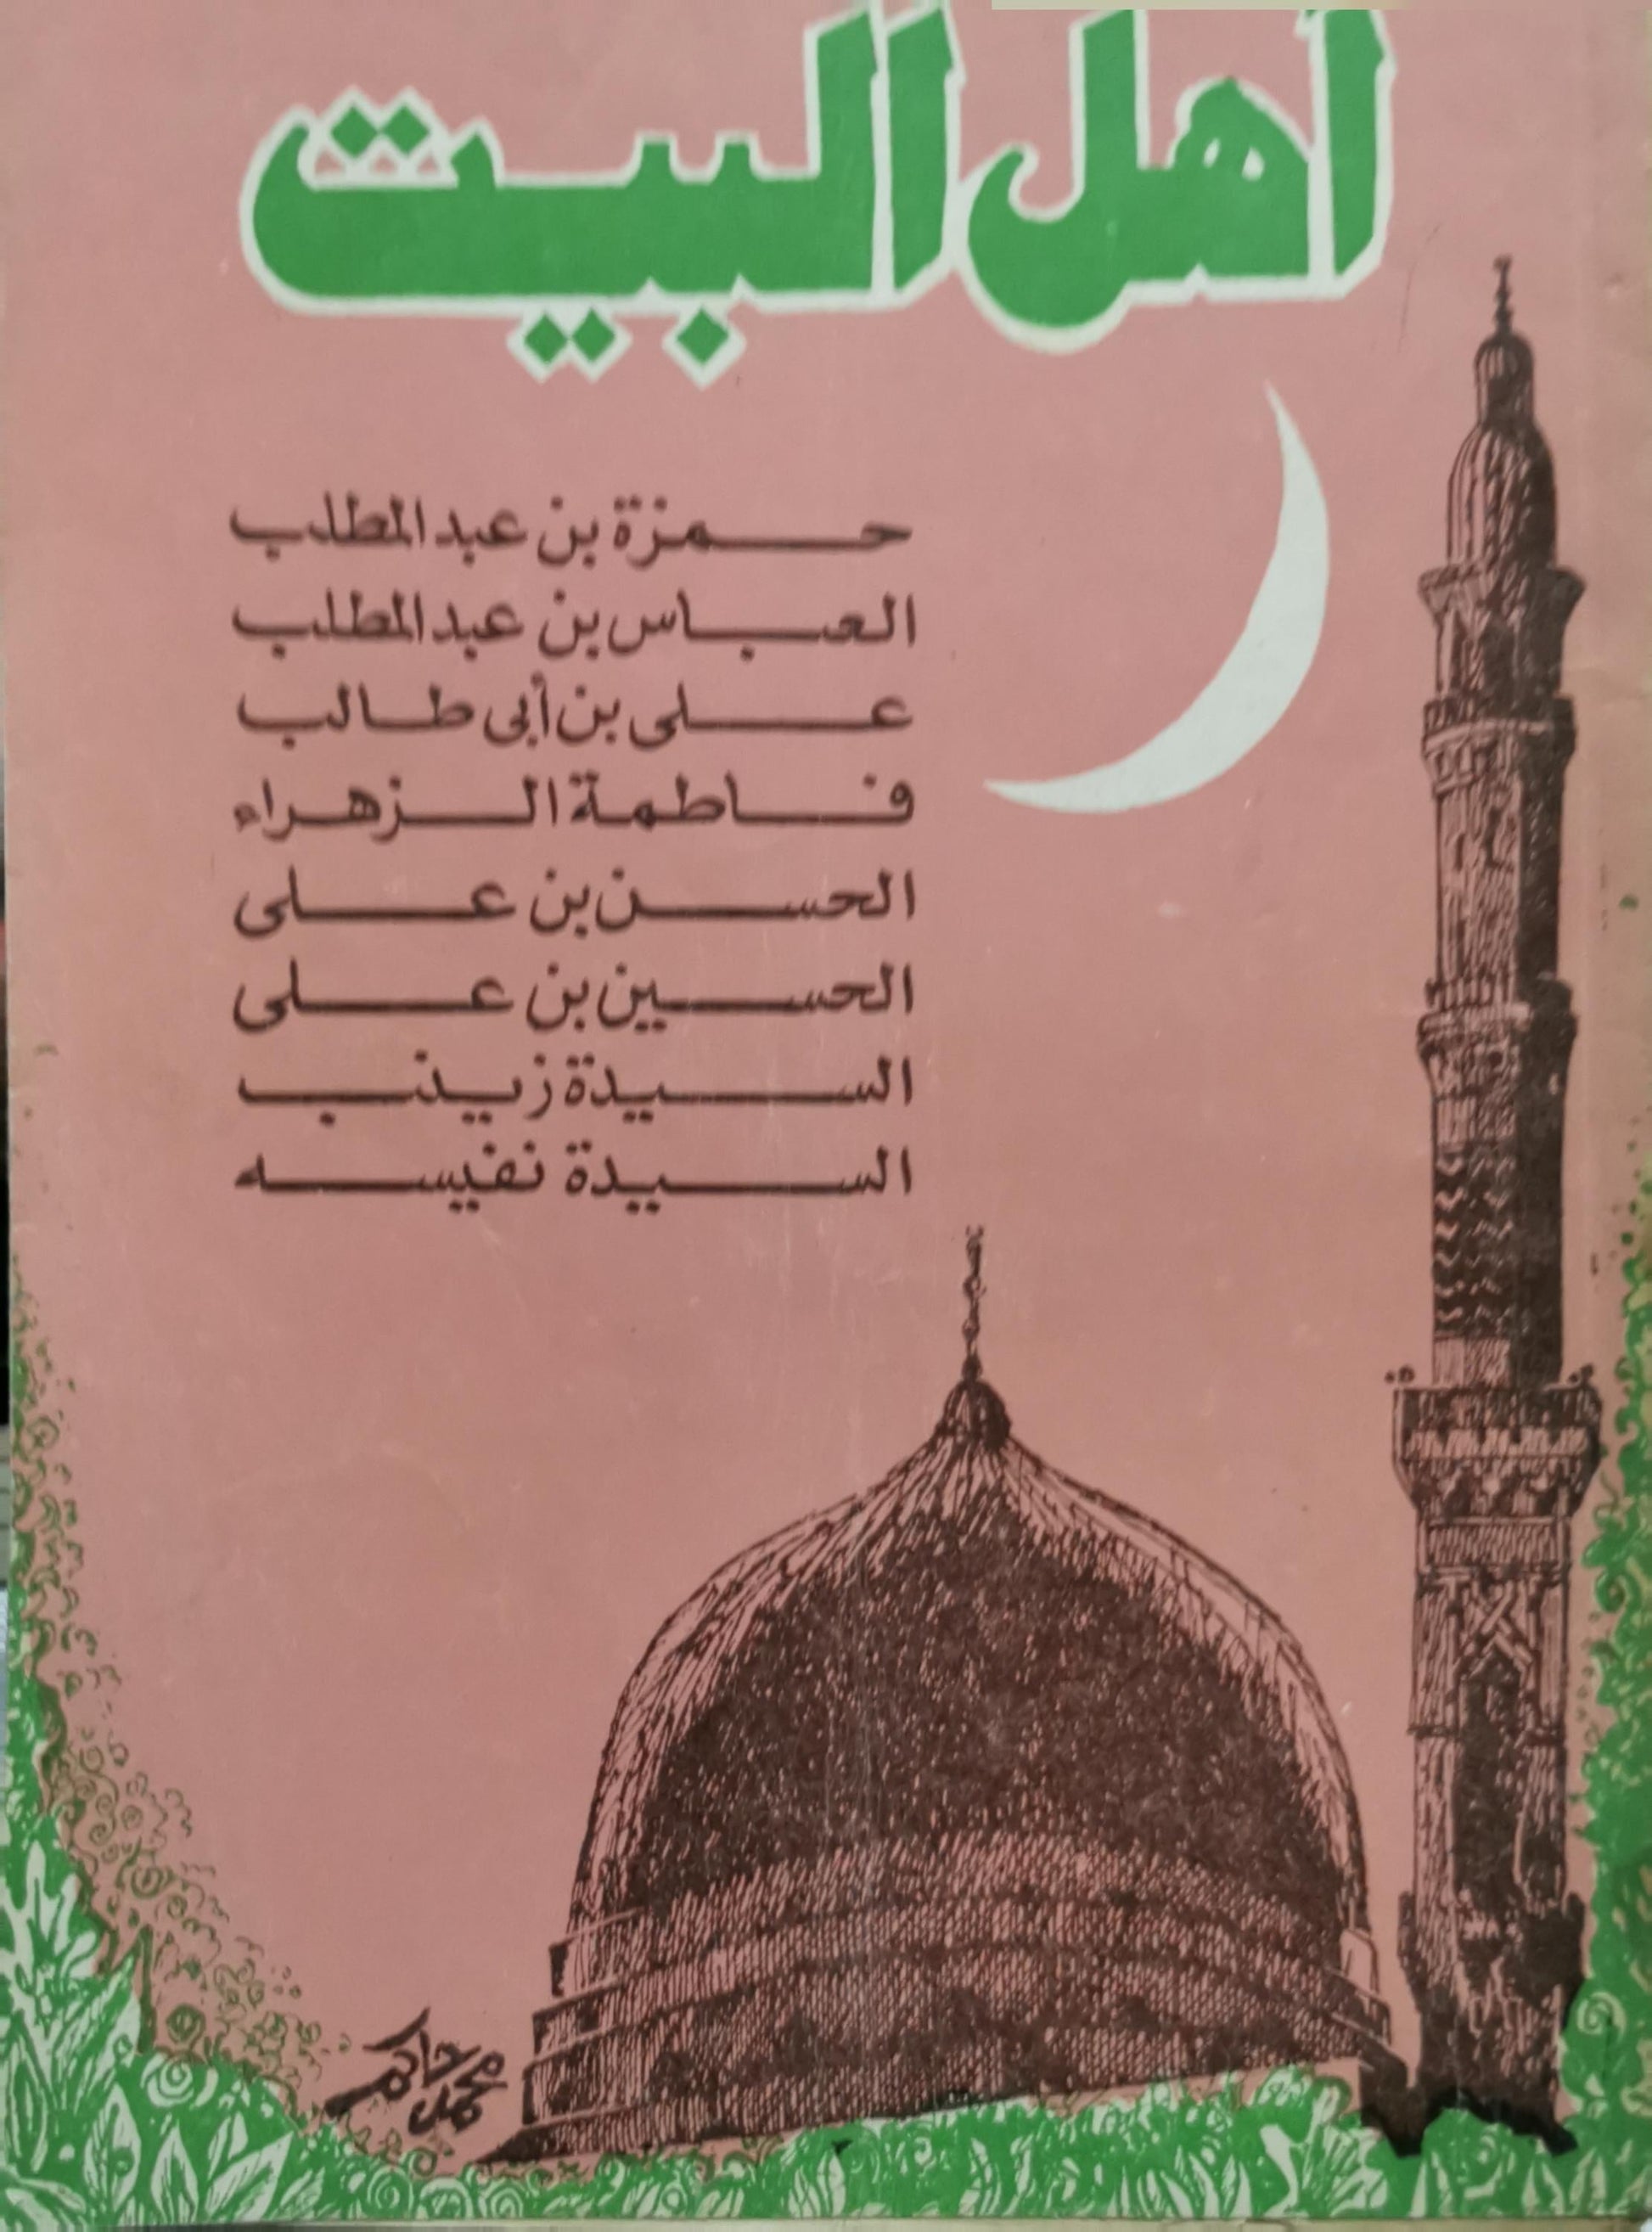 أهل البيت
حمزة بن عبد المطلب
العباس بن عبد المطلب
على بن أبى طالب
فاطمة الزهراء
الحسن بن على
الحسين بن على
السيدة زينب
السيدة نفيسه
محمد حاكم